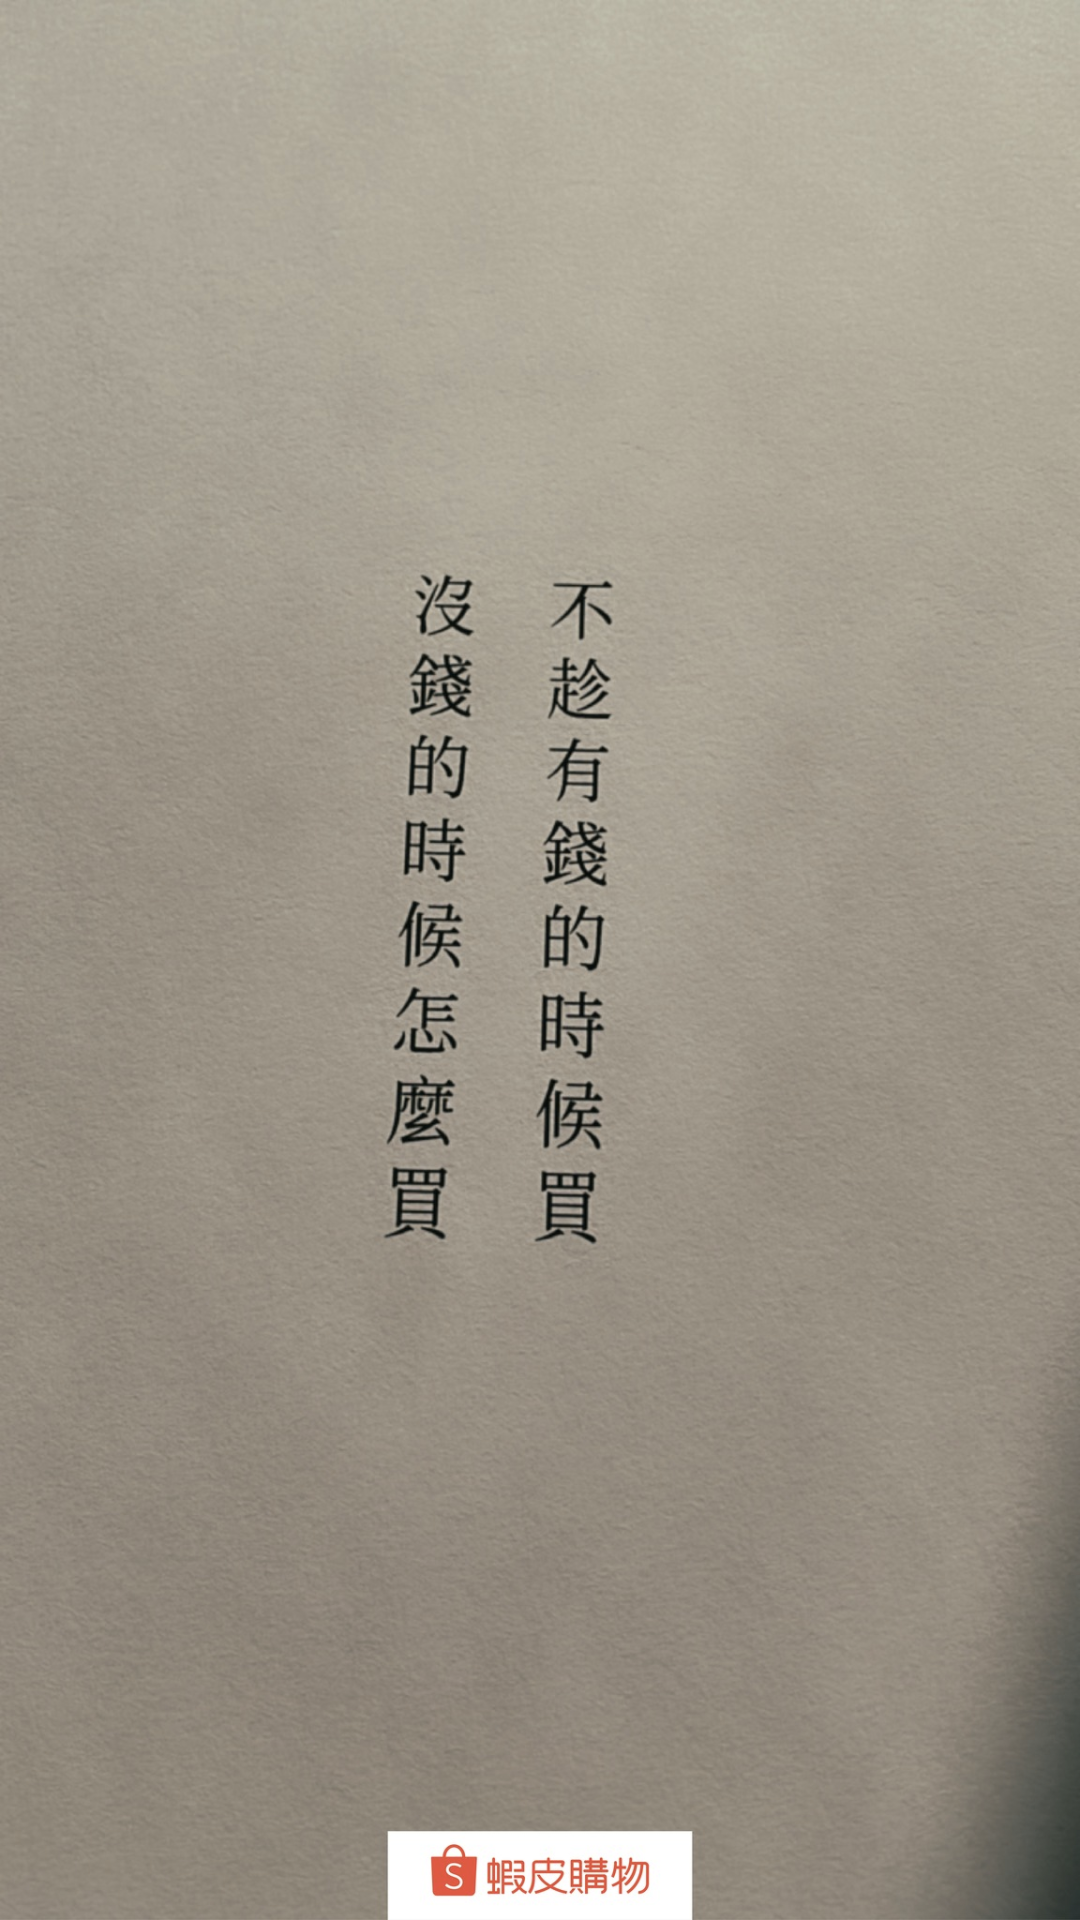 不趁有錢的時候買
沒錢的時候怎麼買
蝦皮購物